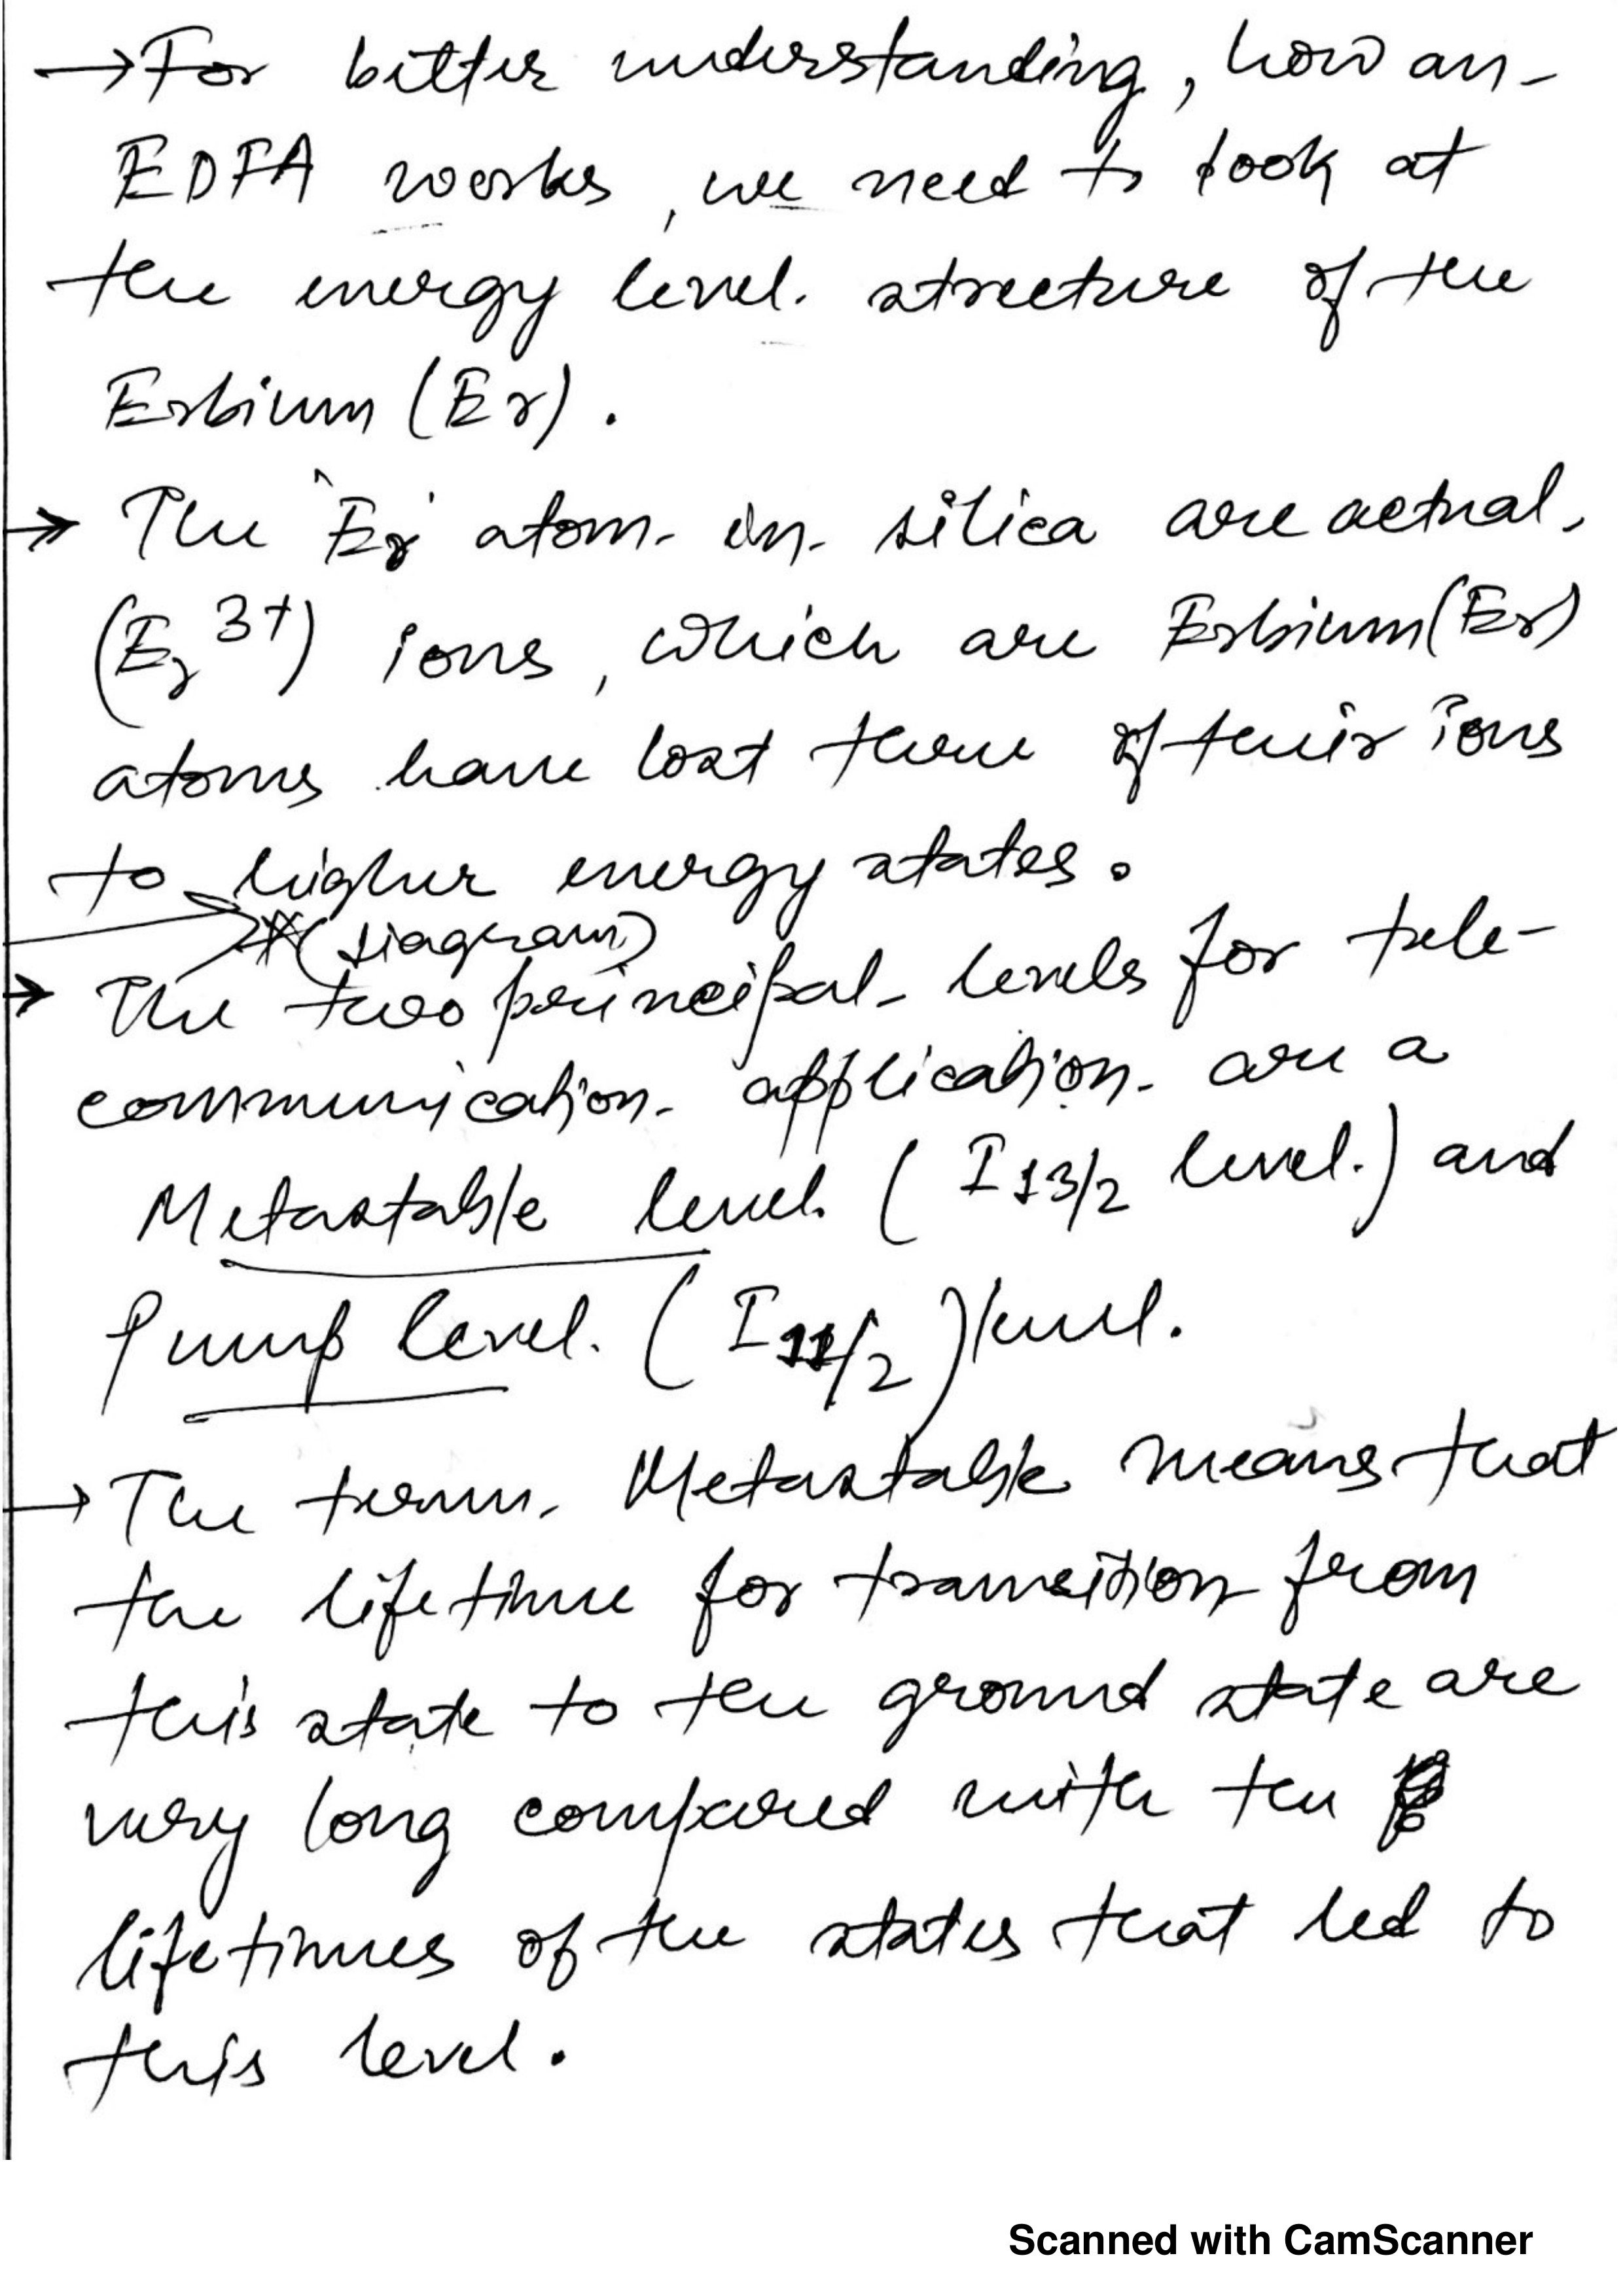 → For better understanding, how an
EDFA works, we need to look at
the energy level structure of the
Erbium (Er).
→ The 'Er' atom in silica are actual
(Er 3+) ions, which are Erbium (Er)
atoms have lost three of their ions
to higher energy states.
* (diagram)
→ The two principal levels for tele-
communication application are a
Metastable level ( I 13/2 level.) and
Pump level. ( I 11/2 ) level.
→ The term Metastable means that
the lifetime for transition from
this state to the ground state are
very long compared with the
lifetimes of the states that led to
this level.
Scanned with CamScanner